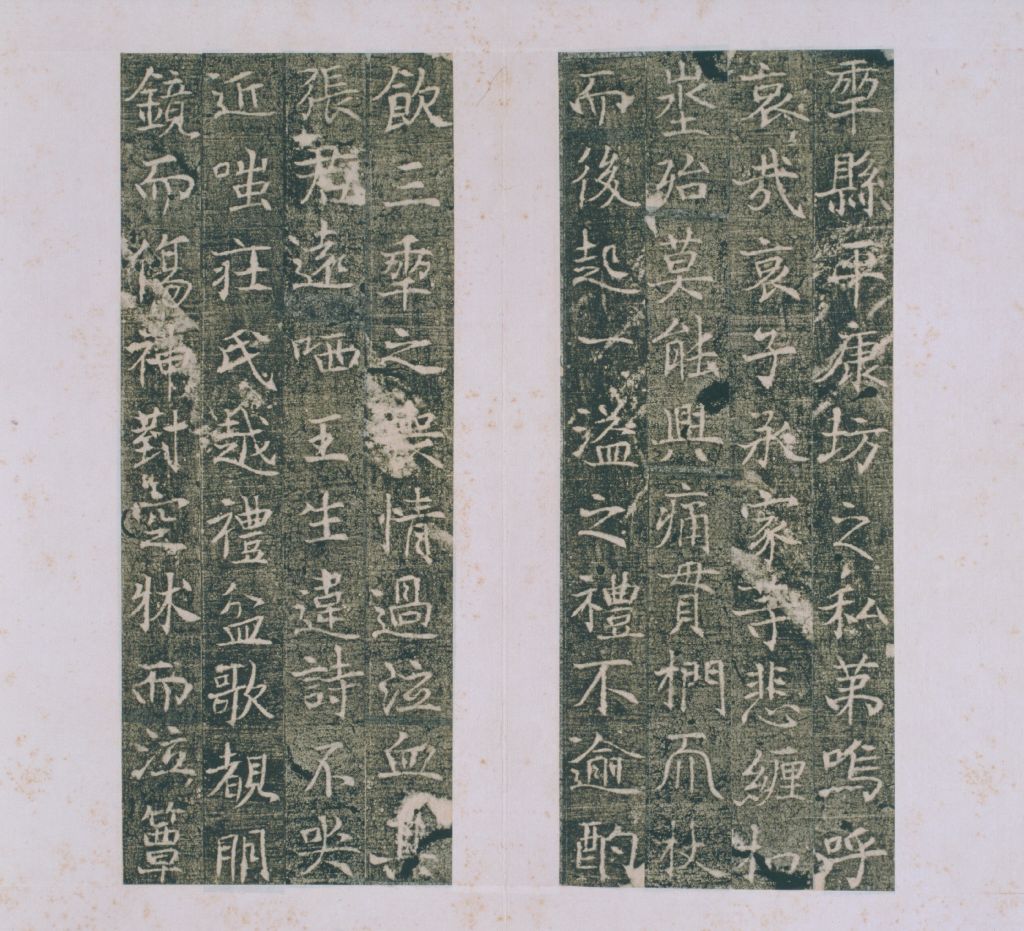 年縣平康坊之私第嗚呼
哀哉哀子承家等悲纏扣
埊殆莫能興痛貫捫𠀑杖
而後起一溢之禮不逾酌
飲三年之喪情過泣血其
張君遠哂王生違詩不哭
近嗤莊氏越禮盆歌覩明
鏡而傷神對空牀而泣簟